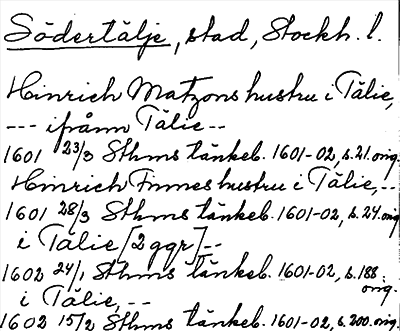 Södertälje, stad, Stockh. l.
Hinrich Matzons hustru i Tälie,
--- ifrånn Tälie --
1601 23/3 Sthms tänkeb. 1601-02, s. 21. orig.
Hinrich Finnes hustru i Tälie, --
1601 28/3 Sthms tänkeb. 1601-02, s. 24. orig.
i Tälie [2 ggr] --
1602 24/1 Sthms tänkeb. 1601-02, s. 188. orig.
i Tälie, --
1602 15/2 Sthms tänkeb. 1601-02, s. 200. orig.